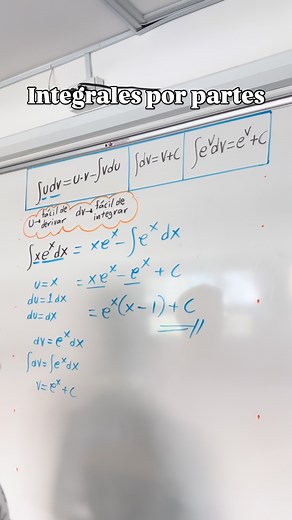 Integrales por partes
∫udv=u·v-∫vdu
∫dv=v+C
∫eᵛdv=eᵛ+C
u→ fácil de derivar
dv→ fácil de integrar
∫xeˣdx = xeˣ-∫eˣdx
u=x
= xeˣ-eˣ+C
du=1dx
du=dx
= eˣ(x-1)+C
dv=eˣdx
∫dv=∫eˣdx
v=eˣ+C